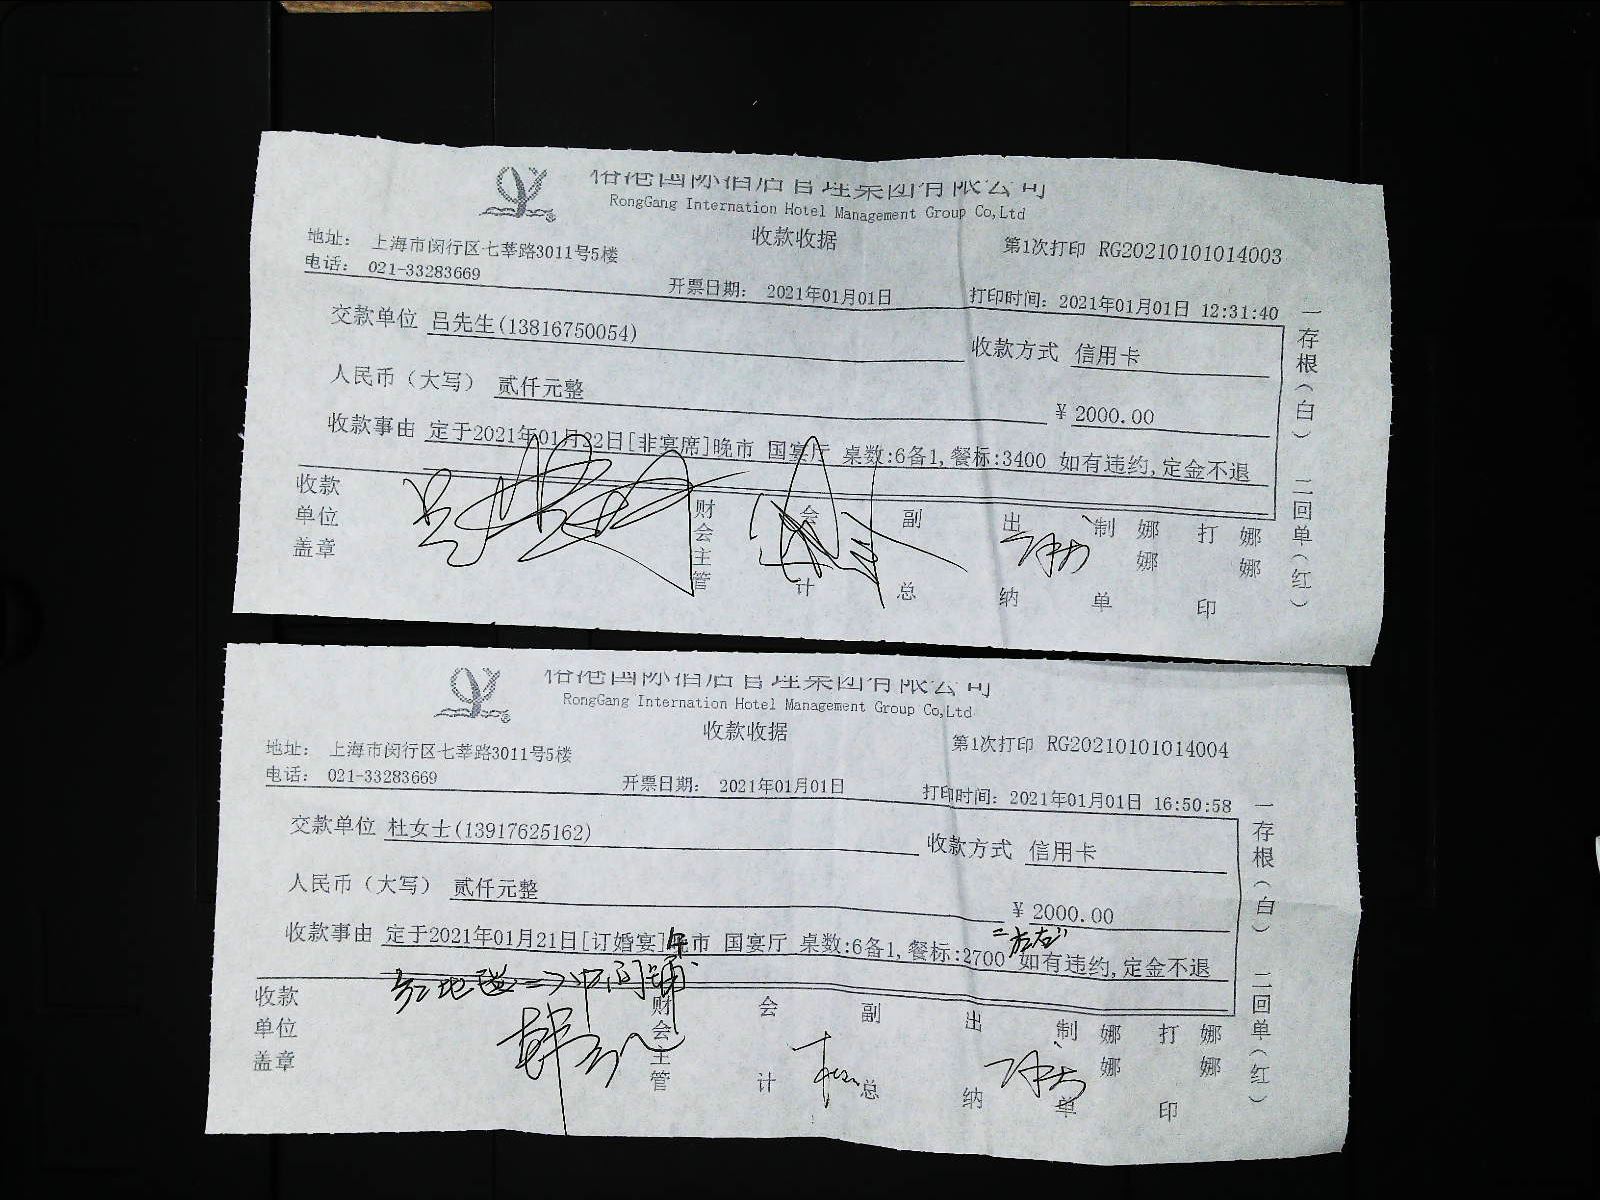 裕港国际酒店管理集团有限公司
RongGang Internation Hotel Management Group Co,Ltd
收款收据
地址： 上海市闵行区七莘路3011号5楼
第1次打印 RG20210101014003
电话： 021-33283669
开票日期： 2021年01月01日
打印时间：2021年01月01日 12:31:40
交款单位 吕先生(13816750054)
收款方式 信用卡
人民币（大写） 贰仟元整
¥ 2000.00
收款事由 定于2021年01月22日[非宴席]晚市 国宴厅 桌数:6备1,餐标:3400 如有违约,定金不退
收款单位盖章
财会主管
会计
副总
出纳
制单
娜娜
打印
娜娜
一存根（白） 二回单（红）
裕港国际酒店管理集团有限公司
RongGang Internation Hotel Management Group Co,Ltd
收款收据
地址： 上海市闵行区七莘路3011号5楼
第1次打印 RG20210101014004
电话： 021-33283669
开票日期： 2021年01月01日
打印时间：2021年01月01日 16:50:58
交款单位 杜女士(13917625162)
收款方式 信用卡
人民币（大写） 贰仟元整
¥ 2000.00
"左右"
收款事由 定于2021年01月21日[订婚宴]午市 国宴厅 桌数:6备1,餐标:2700 如有违约,定金不退
红地毯 中间铺
收款单位盖章
财会主管
会计
副总
出纳
制单
娜娜
打印
娜娜
一存根（白） 二回单（红）